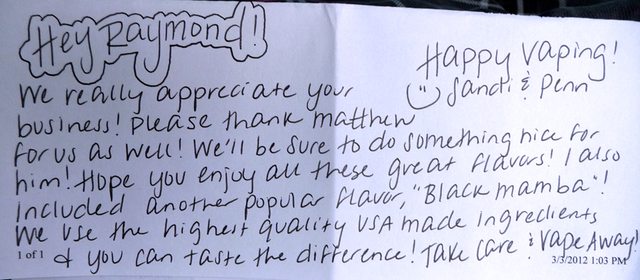 Hey Raymond!
Happy Vaping!
☺ Sandi & Penn
We really appreciate your
business! Please thank matthew
for us as well! We'll be sure to do something nice for
him! Hope you enjoy all these great flavors! I also
included another popular flavor, "Black mamba"!
We use the highest quality USA made ingredients
& you can taste the difference! Take care & Vape Away!
1 of 1
3/3/2012 1:03 PM